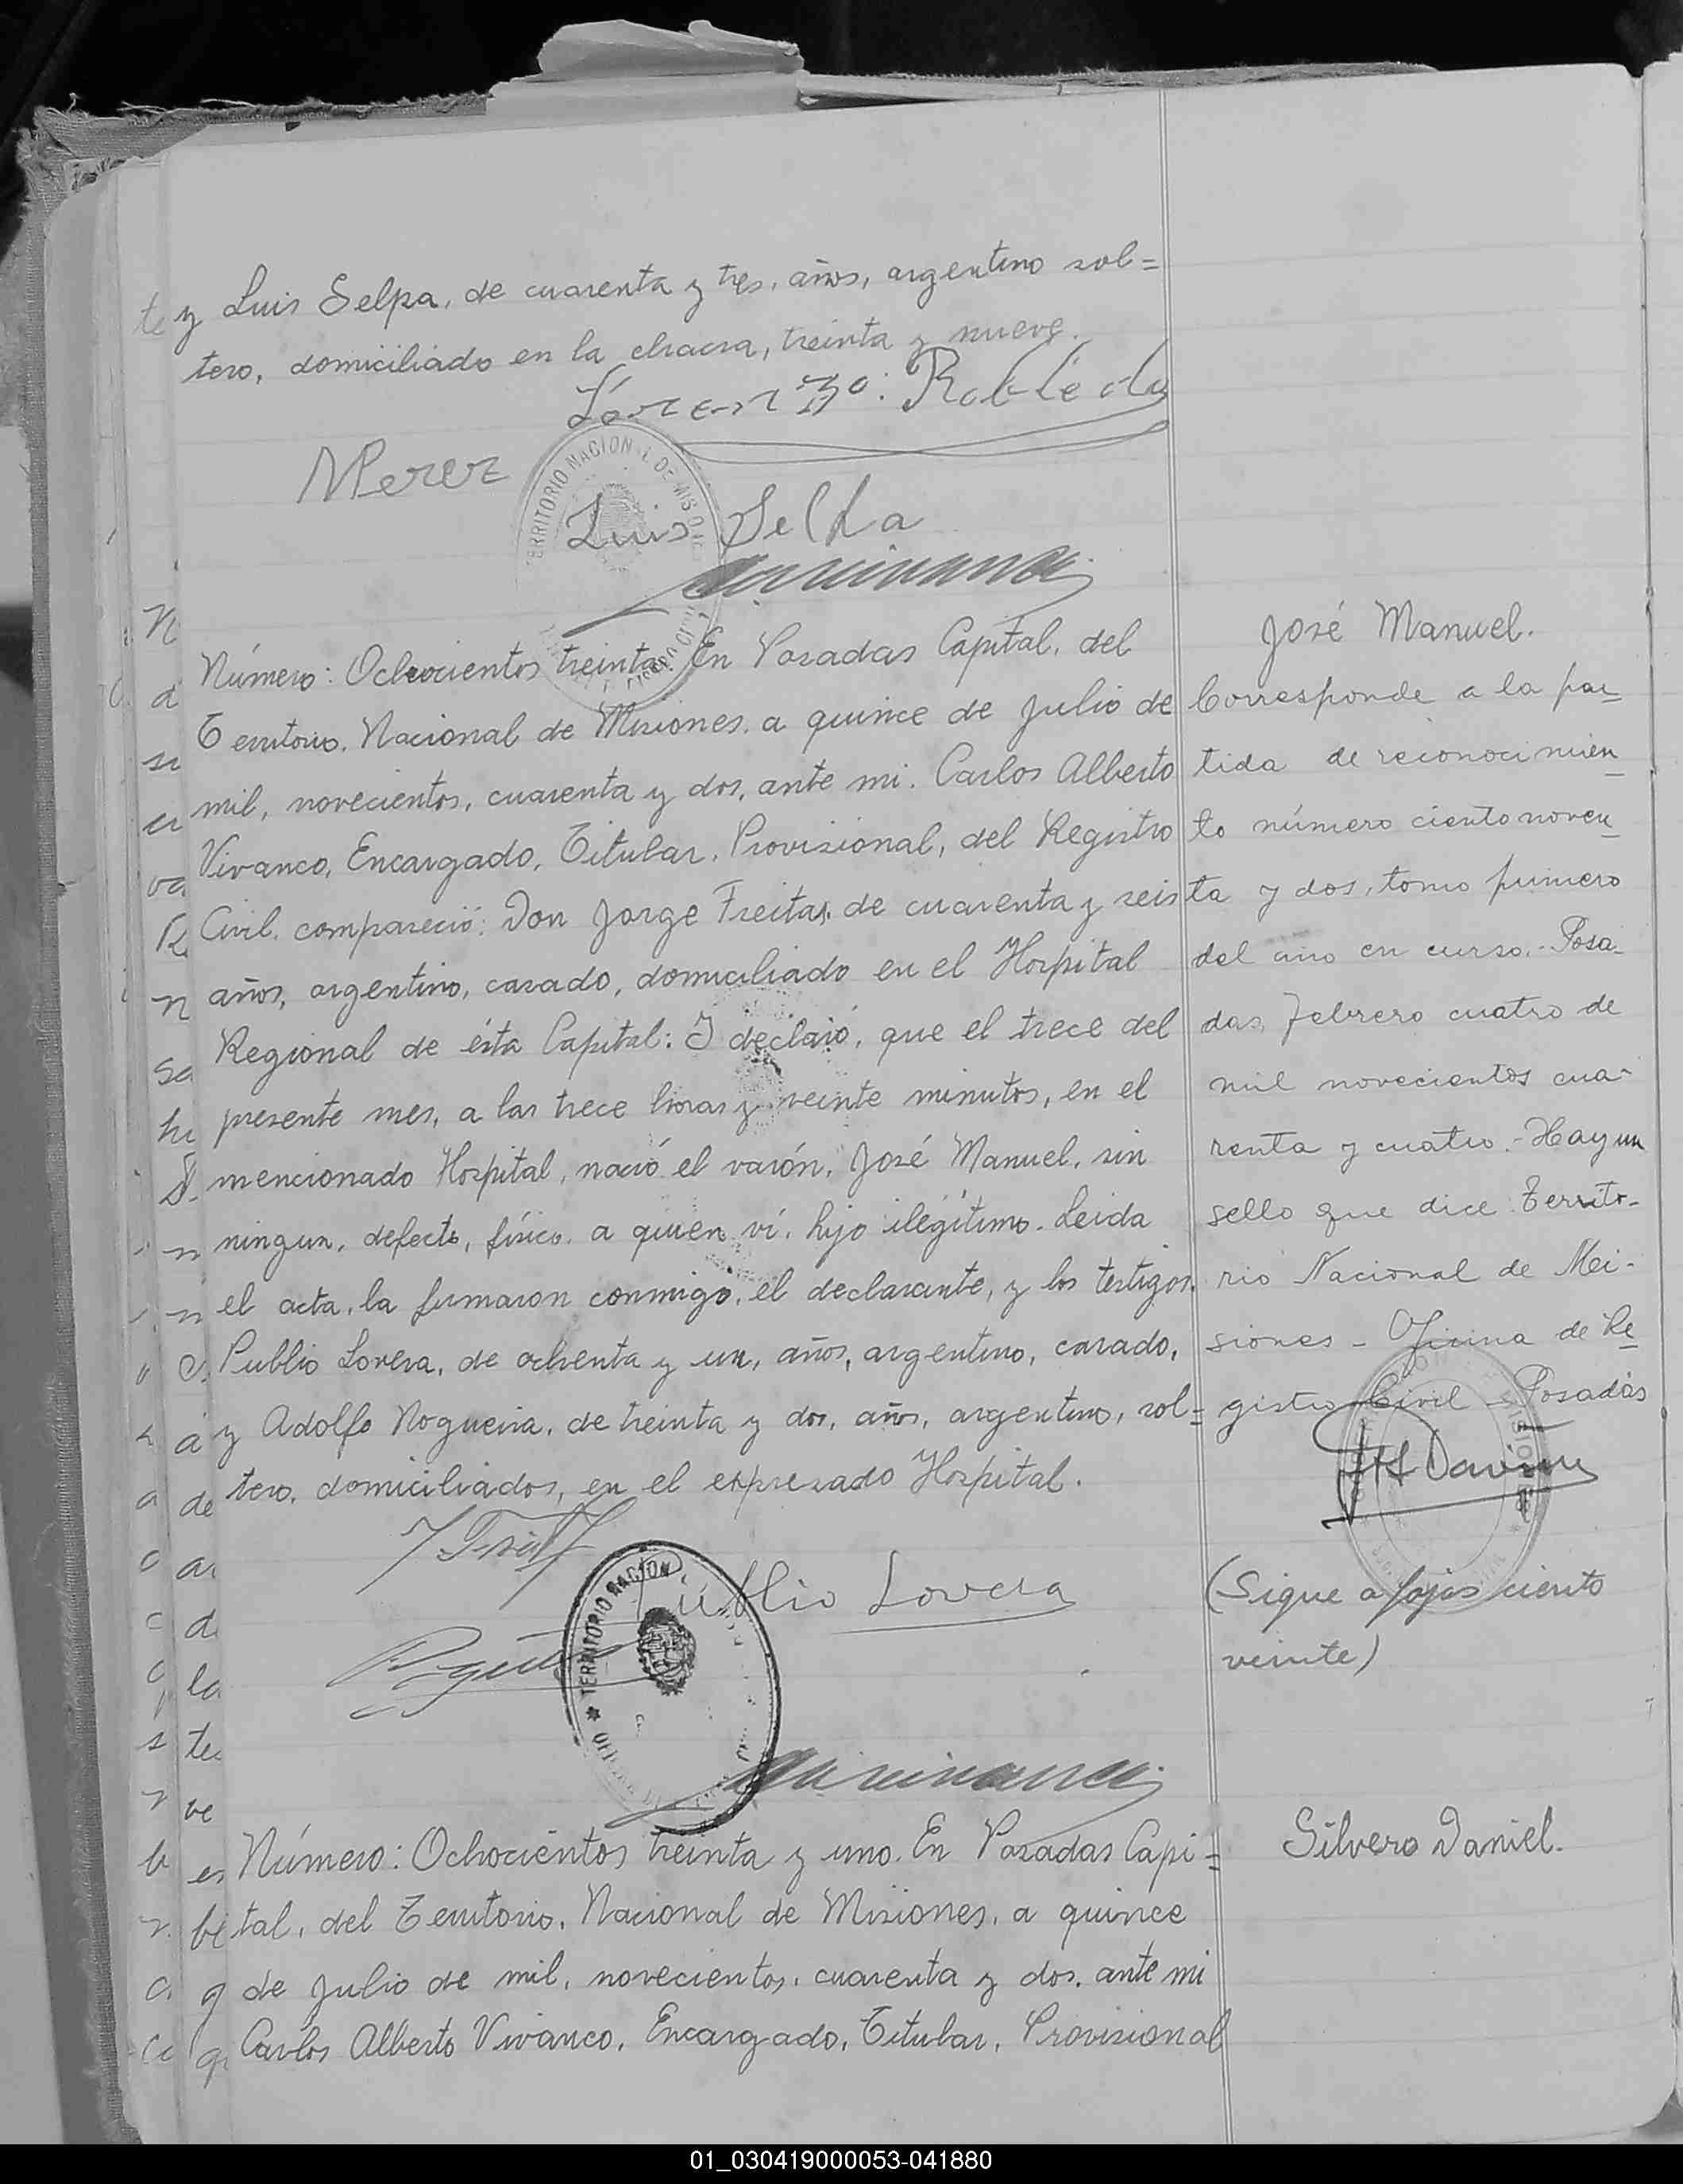 y Luis Selpa, de cuarenta y tres, años, argentino sol=
tero, domiciliado en la chacra, treinta y nueve.
Lorenzo: Robledo
NPerez
TERRITORIO NACIONAL DE MISIONES
Luis Selpa
José Manuel.
Número: Ochocientos treinta. En Posadas Capital, del
Territorio. Nacional de Misiones, a quince de Julio de
mil, novecientos, cuarenta y dos, ante mi. Carlos Alberto
Vivanco, Encargado, Titular, Provisional, del Registro
Civil. compareció: Don Jorge Freitas, de cuarenta y seis
años, argentino, casado, domiciliado en el Hospital
Regional de ésta Capital: I declaró, que el trece del
presente mes, a las trece horas y veinte minutos, en el
mencionado Hospital, nació el varón, José Manuel, sin
ningun, defecto, físico, a quien ví, hijo ilegítimo. Leida
el acta, la firmaron conmigo, el declarante, y los testigos,
Publio Lovera, de ochenta y un, años, argentino, casado,
y Adolfo Nogueira, de treinta y dos, años, argentino, sol=
tero, domiciliados, en el expresado Hospital.
Corresponde a la par_
tida de reconocimien_
to número ciento noven_
ta y dos, tomo primero
del año en curso.- Posa-
das, Febrero cuatro de
mil novecientos cua-
renta y cuatro.- Hay un
sello que dice: Territo-
rio Nacional de Mi-
siones - Oficina de Re_
gistro Civil - Posadas
(Sigue a fojas ciento
veinte)
Publio Lovera
TERRITORIO NACION
Silvero Daniel.
Número: Ochocientos treinta y uno. En Posadas Capi=
tal, del Territorio, Nacional de Misiones, a quince
de Julio de mil, novecientos, cuarenta y dos, ante mi
Carlos Alberto Vivanco, Encargado, Titular, Provisional
01_030419000053-041880